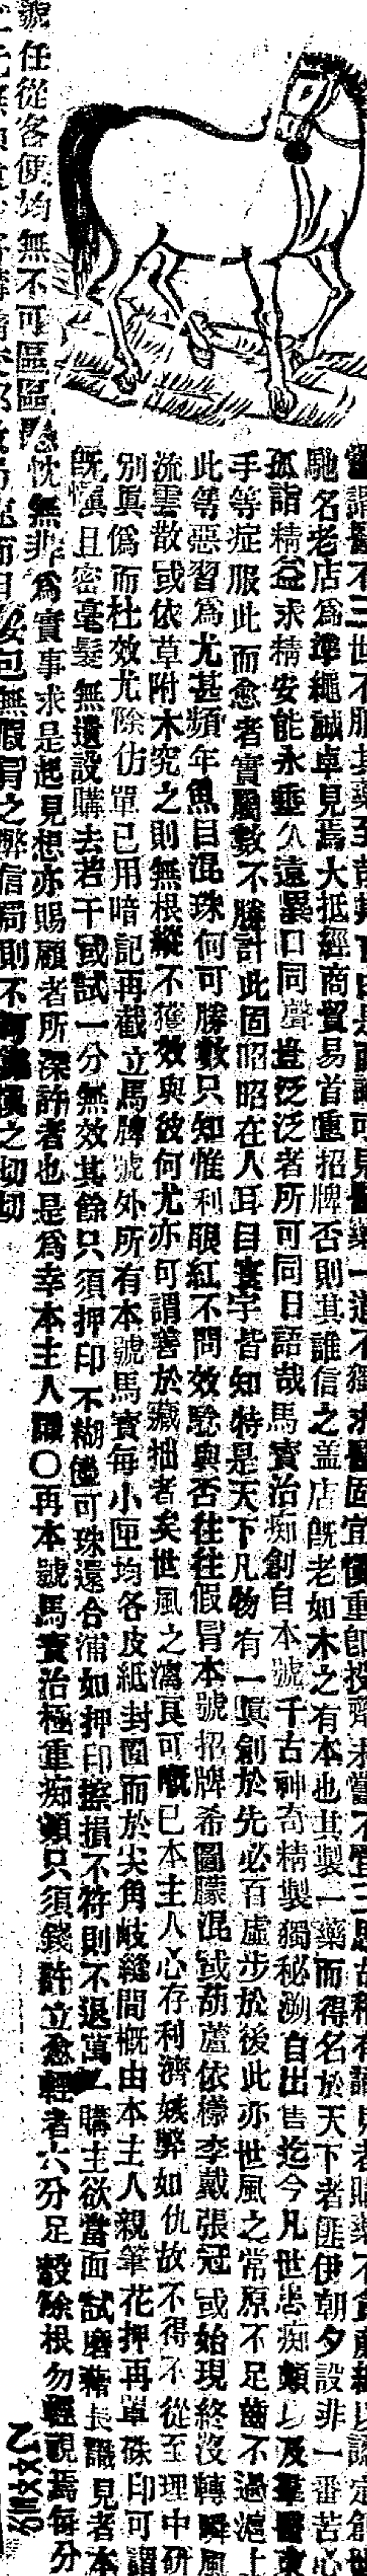 不三世不服其藥至
馳名老店為準繩誠卓見焉大抵經商貿易首重招牌否則其誰信之蓋店既老如木之有本也其製一藥而得名於天下者匪伊朝夕設非一番苦心
孤詣精益求精安能永垂久遠異口同聲豈泛泛者所可同日語哉馬寶治痴創自本號千古神奇精製獨秘溯自出售迄今凡世患痴癲以及羣醫束
手等症服此而愈者實屬數不勝計此固昭昭在人耳目寰宇皆知特是天下凡物有一真創於先必百虛步於後此亦世風之常原不足齒不過滬上
此等惡習為尤甚頻年魚目混珠何可勝數只知惟利眼紅不問效驗與否往往假冒本號招牌希圖朦混或葫蘆依樣李戴張冠或始現終沒轉瞬風
流雲散或依草附木究之則無根縱不獲效與彼何尤亦可謂善於藏拙者矣世風之漓真可慨已本主人心存利濟嫉弊如仇故不得不從至理中研
別真偽而杜效尤除仿單已用暗記再截立馬牌號外所有本號馬寶每小匣均各皮紙封固而於尖角岐縫間概由本主人親筆花押再罩硃印可謂
既慎且密毫髮無遺設購去若干或試一分無效其餘只須押印不糊儘可珠還合浦如押印擦損不符則不退萬一購主欲當面試磨藉長識見者本
號任從客便均無不可區區愚忱無非為實事求是起見想亦賜顧者所深許者也是為幸本主人識〇再本號馬寶治極重痴癲只須錢許立愈輕者六分足彀除根勿輕視焉每分
包無假冒之弊信局則不之切切